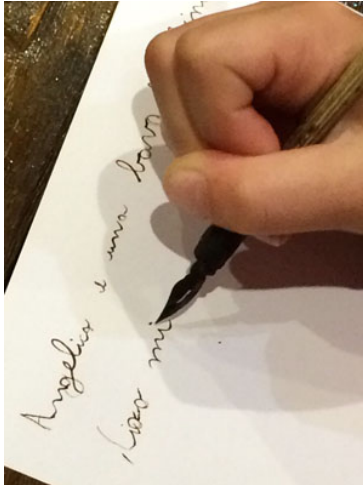 Angelica e una
Ciao mi